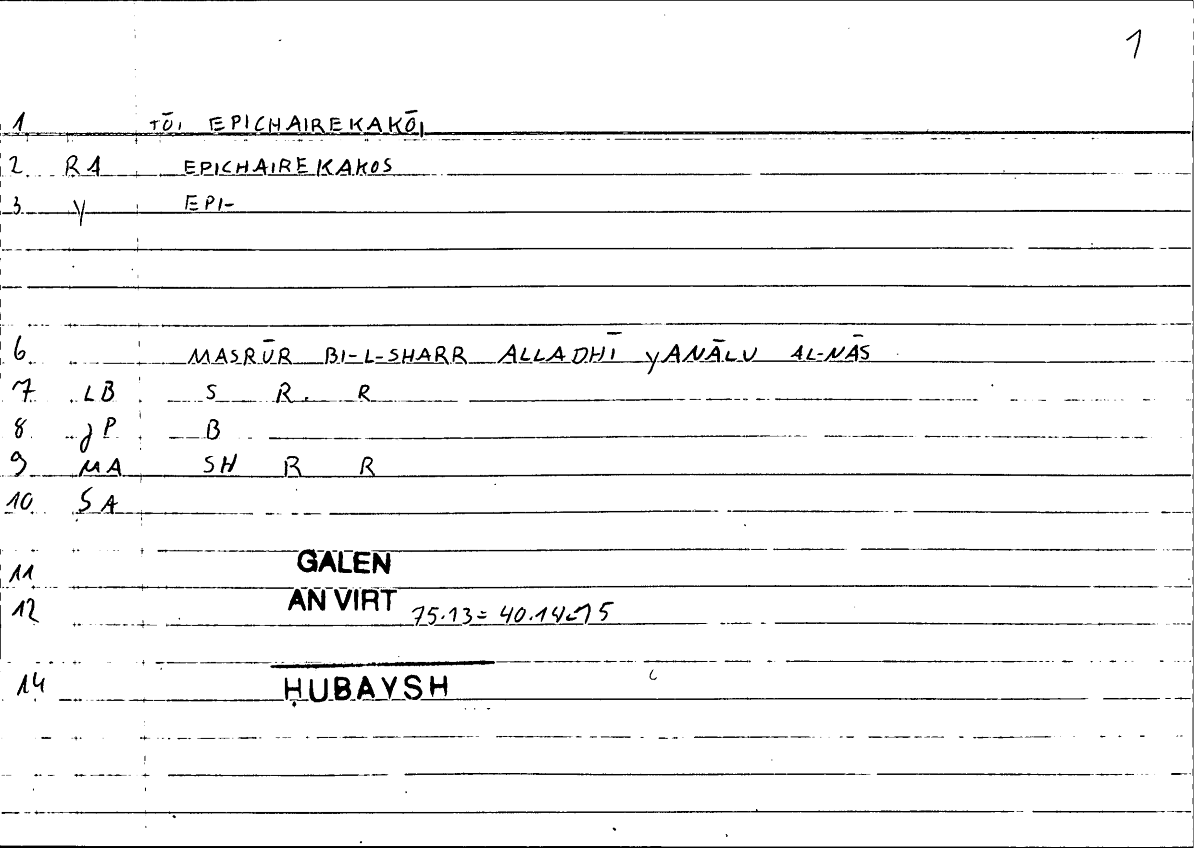 1
1 TŌI EPICHAIREKAKŌI
2 RA EPICHAIREKAKOS
3 y EPI-
6 MASRŪR BI-L-SHARR ALLADHĪ yANĀLU AL-NĀS
7 LB S R. R
8 JP B
9 MA SH R R
10 SA
11 GALEN
12 AN VIRT 75.13 = 40.14-15
14 ḤUBAYSH